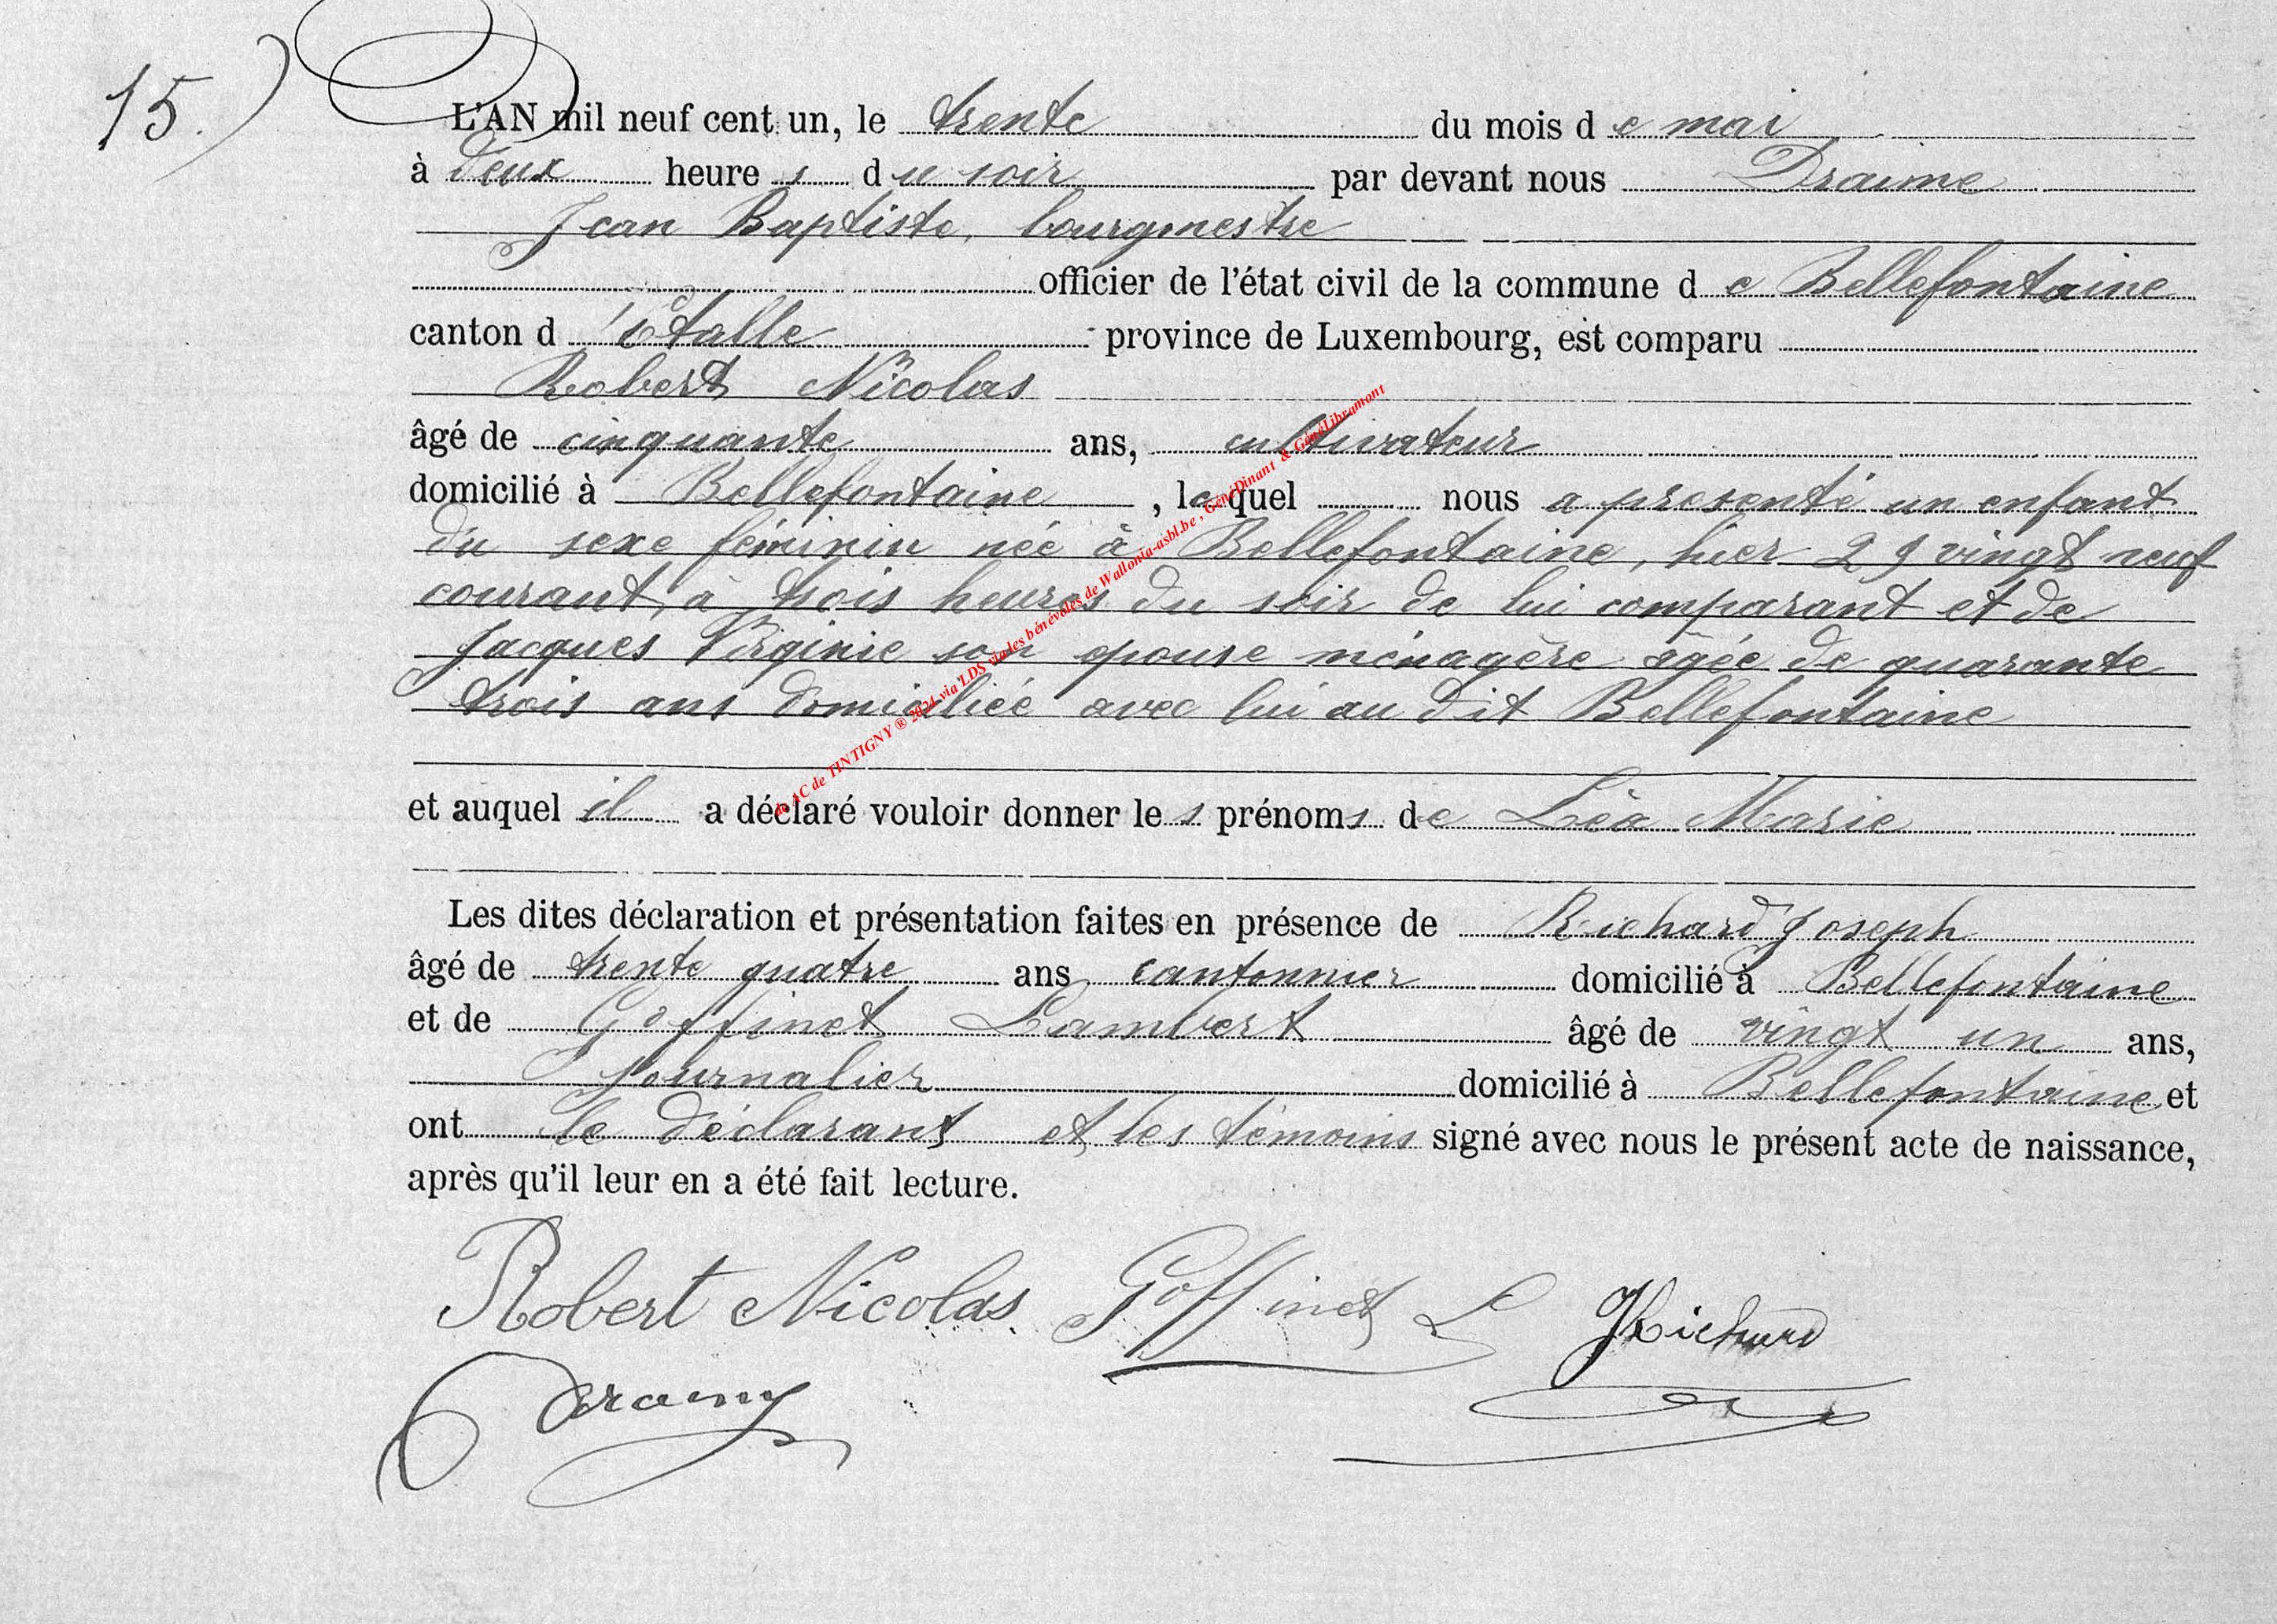 15.)
L'AN mil neuf cent un, le trente du mois de mai
à deux heures du soir par devant nous Draime
Jean Baptiste, bourgmestre
officier de l'état civil de la commune de Bellefontaine
canton d'Etalle province de Luxembourg, est comparu
Robert Nicolas
âgé de cinquante ans, cultivateur
domicilié à Bellefontaine, lequel nous a presenté un enfant
du sexe féminin née à Bellefontaine, hier 29 vingt neuf
courant, à trois heures du soir de lui comparant et de
Jacques Virginie son épouse ménagère âgée de quarante
trois ans domiciliée avec lui au dit Bellefontaine
et auquel il a déclaré vouloir donner les prénoms de Léa Marie
Les dites déclaration et présentation faites en présence de Richard Joseph
âgé de trente quatre ans cantonnier domicilié à Bellefontaine
et de Goffinet Lambert âgé de vingt un ans,
journalier domicilié à Bellefontaine et
ont le déclarant et les témoins signé avec nous le présent acte de naissance,
après qu'il leur en a été fait lecture.
Robert Nicolas Goffinet L JRichard
de AC de TINTIGNY ® 2024 via LDS via les bénévoles de Wallonia-asbl.be, GénéDinant & GénéLibramont